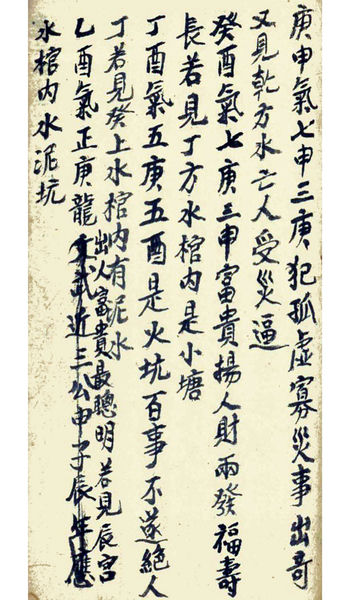 庚申氣七申三庚犯孤虛寡災事出奇
又見乾方水亡人受災逼
癸酉氣七庚三申富貴揚人財兩發福壽
長若見丁方水棺內是小塘
丁酉氣五庚五酉是火坑百事不遂絕人
丁若見癸上水棺內有泥水
乙酉氣正庚龍出人富貴最聰明若見辰宮
文武近三公申子辰年應
水棺內水泥坑